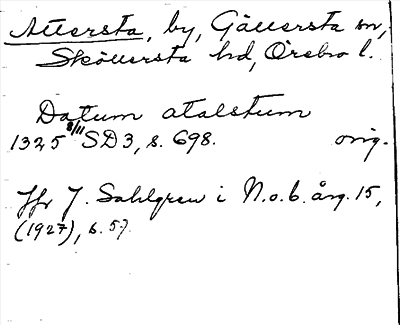 Attersta, by, Gällersta sn,
Sköllersta hd, Örebro l.
Datum atalstum
1325 8/11 SD3, s. 698. orig.
Jfr J. Sahlgren i N.o.b. årg. 15,
(1927), s. 57.